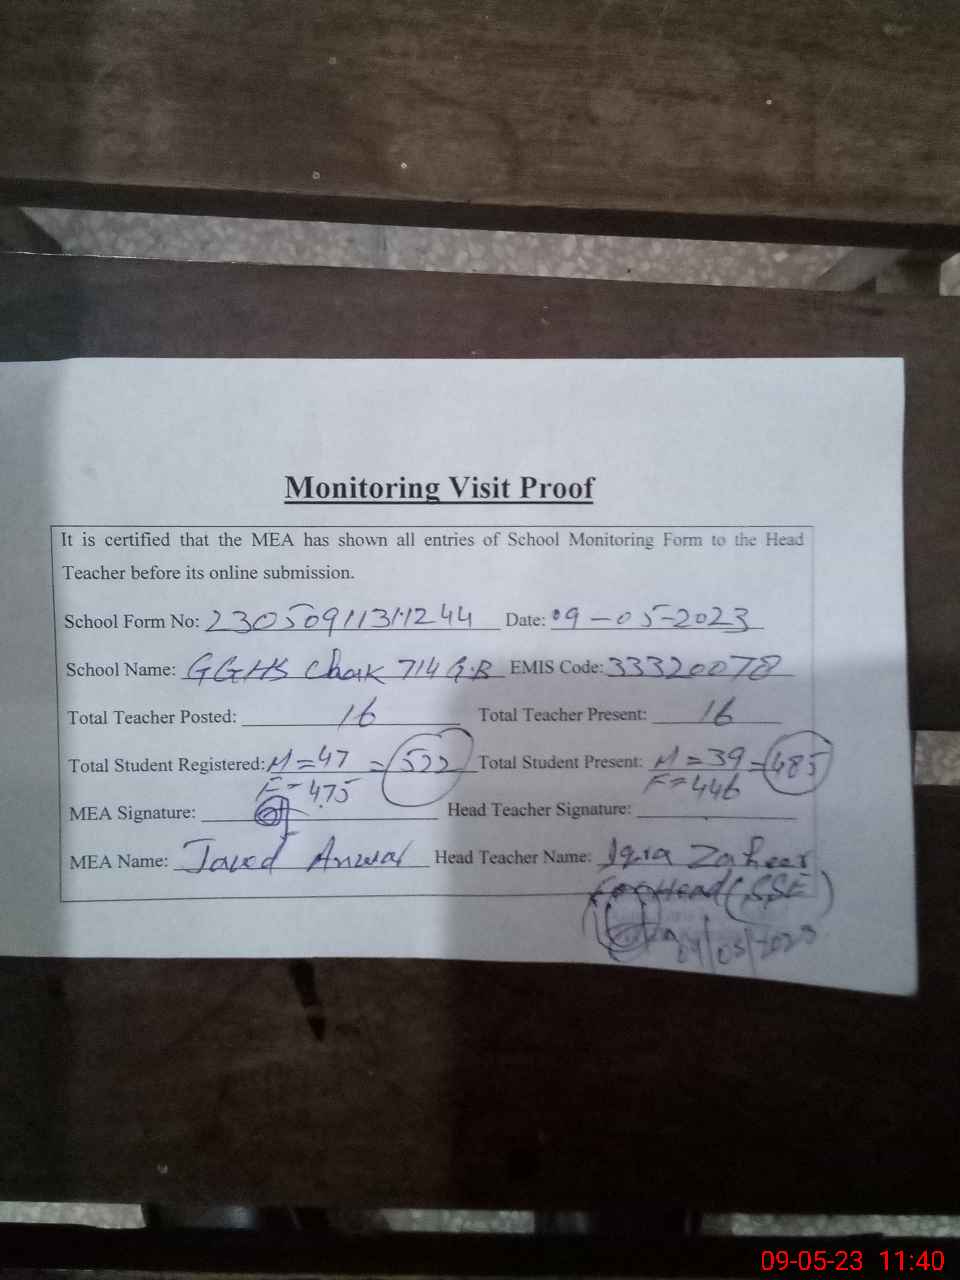 Monitoring Visit Proof
It is certified that the MEA has shown all entries of School Monitoring Form to the Head
Teacher before its online submission.
School Form No: 23050911311244 Date: 09-05-2023
School Name: GGHS Chak 714 G.B EMIS Code: 33320078
Total Teacher Posted: 16 Total Teacher Present: 16
Total Student Registered: M=47 = 522 Total Student Present: M=39 = 485
F=475 F=446
MEA Signature: Head Teacher Signature:
MEA Name: Javed Anwar Head Teacher Name: Iqra Zaheer
For Head (SSE)
09/05/2023
09-05-23 11:40